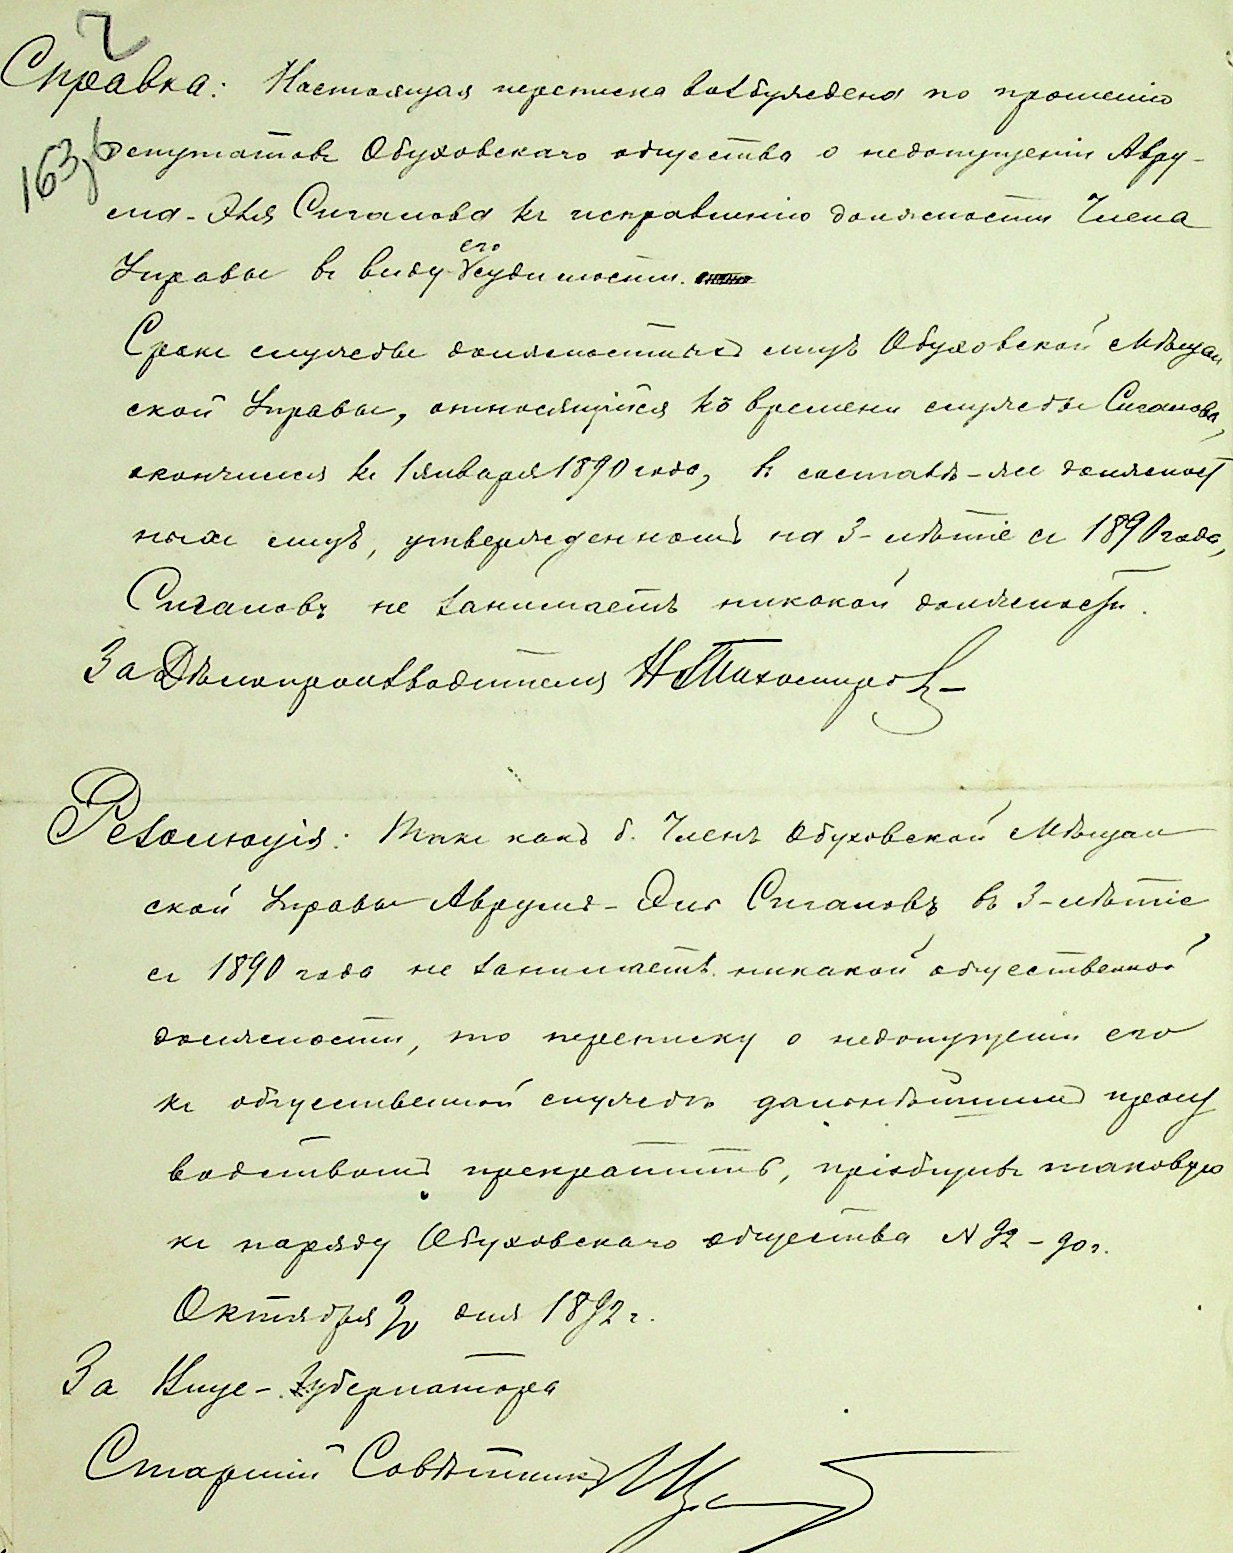 Справка: Настоящая переписка возбуждена по прошенію
депутатовъ Обуховскаго общества о недопущеніи Авру-
ма-Эля Сигалова къ исправленію должности Члена
Управы въ виду его судимости.
Срокъ службы должностныхъ лицъ Обуховской Мѣщан
ской Управы, относящійся къ времени службы Сигалова,
окончился къ 1 января 1890 года, въ составѣ-же должност
ныхъ лицъ, утвержденномъ на 3-лѣтіе съ 1890 года,
Сигаловъ не занимаетъ никакой должности.
За Дѣлопроизводителя Н Тихомировъ
Резолюція: Такъ какъ б. Членъ Обуховской Мѣщан
ской Управы Аврумъ-Эль Сигаловъ въ 3-лѣтіе
съ 1890 года не занимаетъ никакой общественной
должности, то переписку о недопущеніи его
къ общественной службѣ дальнѣйшимъ произ
водствомъ прекратить, пріобщивъ таковую
къ наряду Обуховскаго общества N 92-90 г.
Октября дня 1892 г.
За Вице-Губернатора
Старшій Совѣтникъ
163